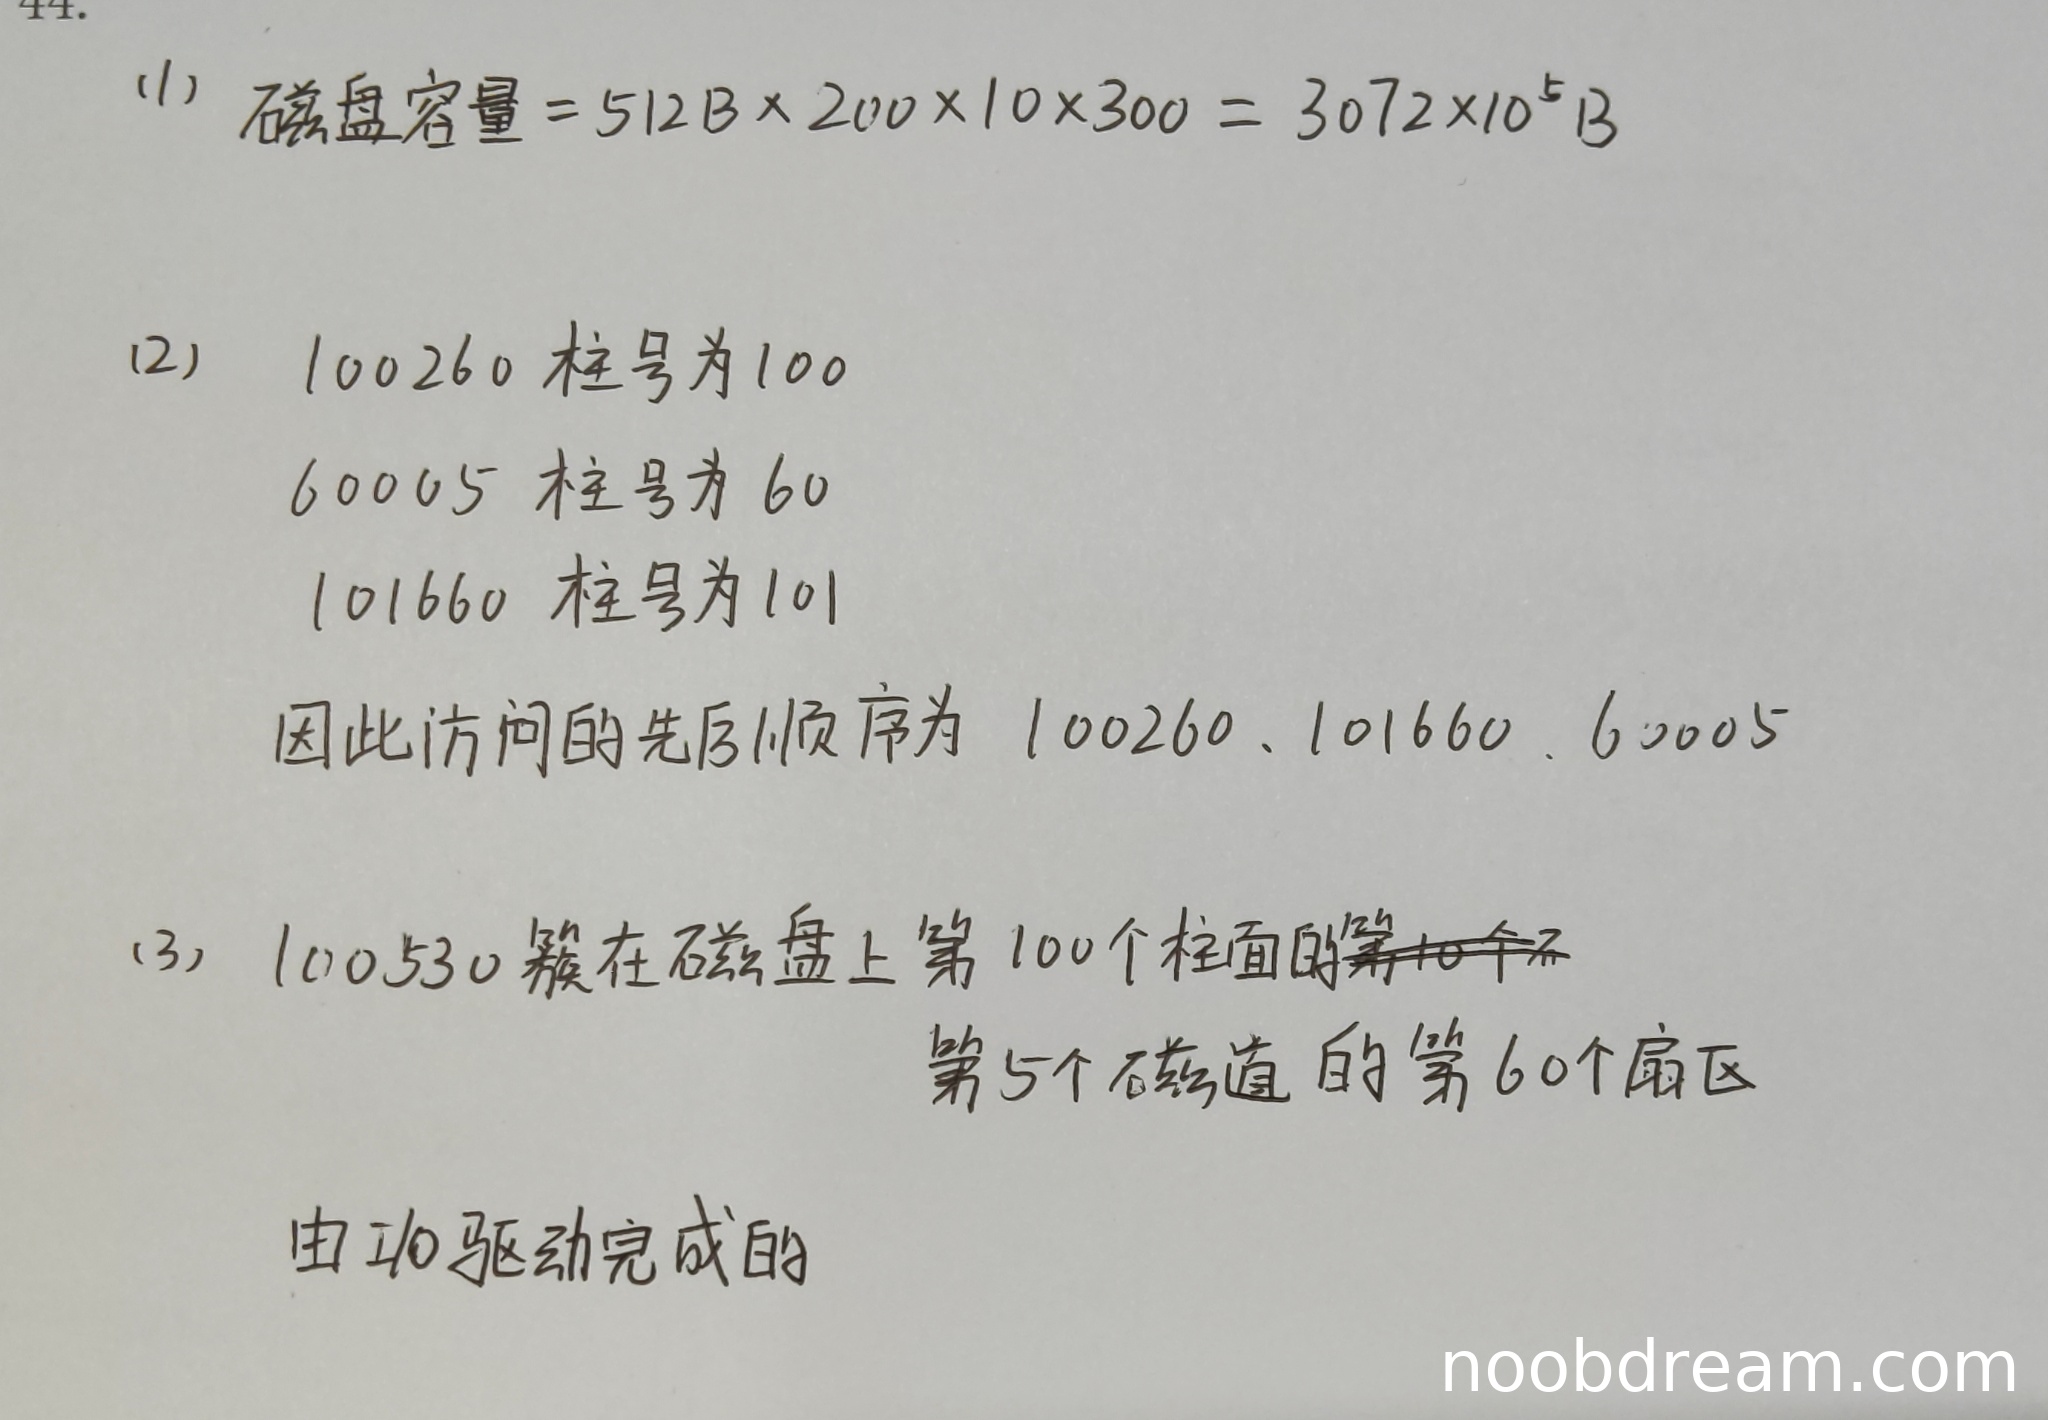 44.
(1) 磁盘容量=512B×200×10×300 = 3072×10⁵B
(2) 100260 柱号为100
60005 柱号为 60
101660 柱号为101
因此访问的先后顺序为 100260、101660、60005
(3) 100530 簇在磁盘上第 100个柱面的
第5个磁道 的第60个扇区
由I/O驱动完成的
noobdream.com